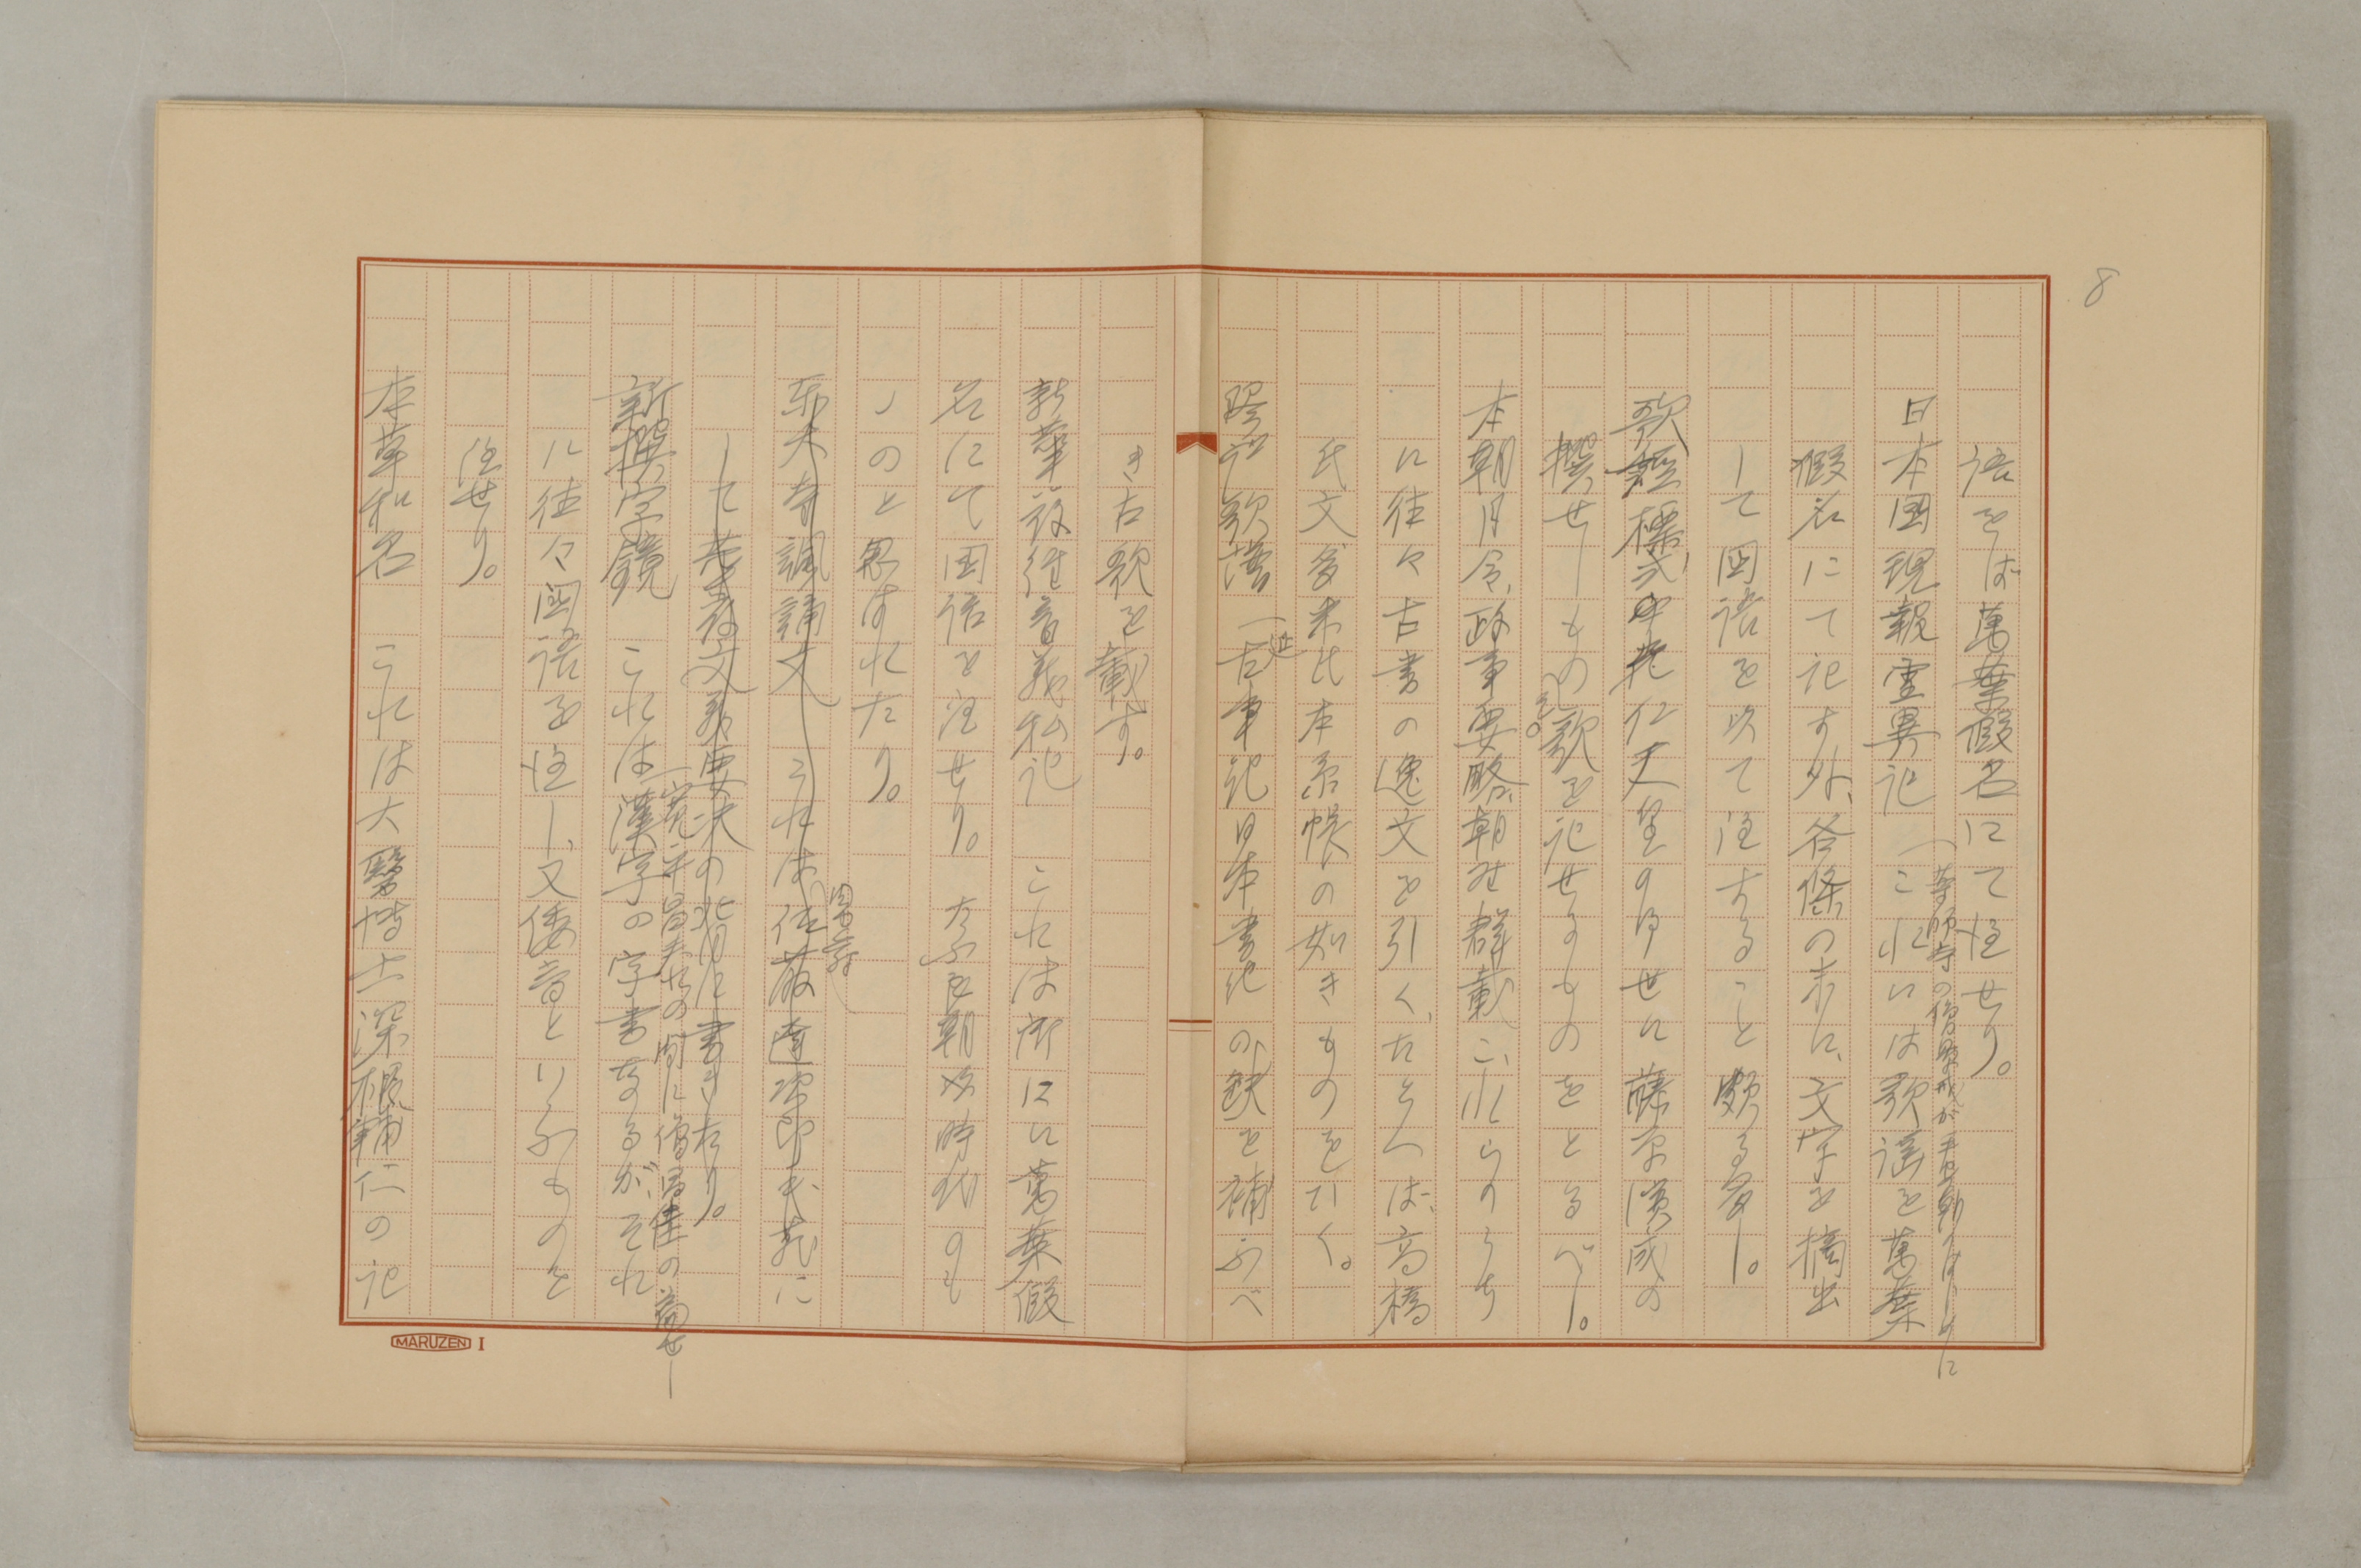 8
語をば萬葉假名にて注せり。
薬師寺の僧景戒が平安朝のはじめに
日本國現報靈異記 これには歌謡を萬葉
假名にて記す外、各條の末に、文字を摘出
して国語を以て注すること頗る多し。
歌經標式、
仁天皇の御世に藤原濱成の
撰せしもの 歌を記せるものをとるべし。
本朝月令、政事要略、朝野群載 これらのうち
に往々古書の逸文を引く、たとへば、高橋
氏文多米氏本系帳の如きものをひく。
琴歌譜 古事記日本書紀の缺を補ふべ
き古歌を載す。
新華嚴経音義私記 これは所々に萬葉假
名にて国語を注せり。奈良朝末時代のも
のと思はれたり。
東大寺諷誦文 これは佐藤達次郎氏蔵に
して華嚴文義要決の背に書きたり。
寛平昌泰の間に僧昌住の著せし
新撰字鏡 これは漢字の字書なるが、それ
に往々國語を注し、又倭音といふものを
注せり。
本草和名 これは大醫博士深根輔仁の記
MARUZEN I